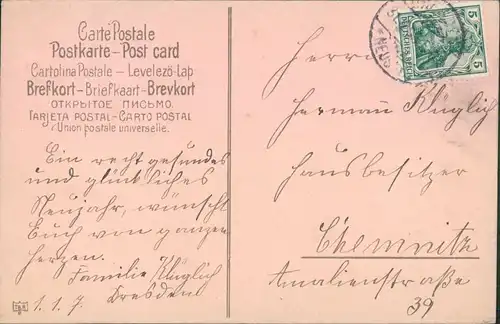 Carte Postale
Postkarte-Post card
Cartolina Postale – Levelező-Lap
Brefkort-Briefkaart-Brevkort
ОТКРЫТОЕ ПИСЬМО.
TARJETA POSTAL-CARTO POSTAL
Union postale universelle.
Ein recht gesundes
und glückliches
Neujahr, wünscht
Euch von ganzen
Herzen.
Familie Klüglich
1.1.7. Dresden
Herrn
Hermann Klüglich
Hausbesitzer
Chemnitz
Amalienstraße
39
5 5
DEUTSCHES REICH